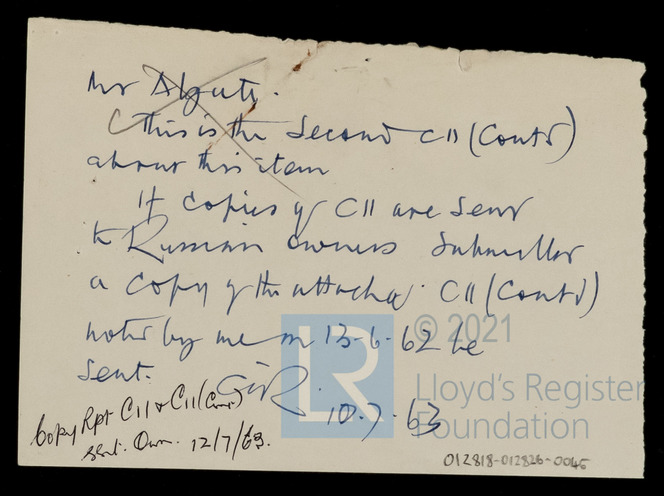 Mr
This is the Second C11 (Contd)
about this item
If copies of C11 are sent
to Russian owners
a copy of the attached C11 (Contd)
noted by me on 13-6-62 be
sent.
10.7.63
Copy Rpt C11 & C11 (Cont)
sent. Own. 12/7/63.
LR
© 2021
Lloyd's Register
Foundation
012818-012826-0045